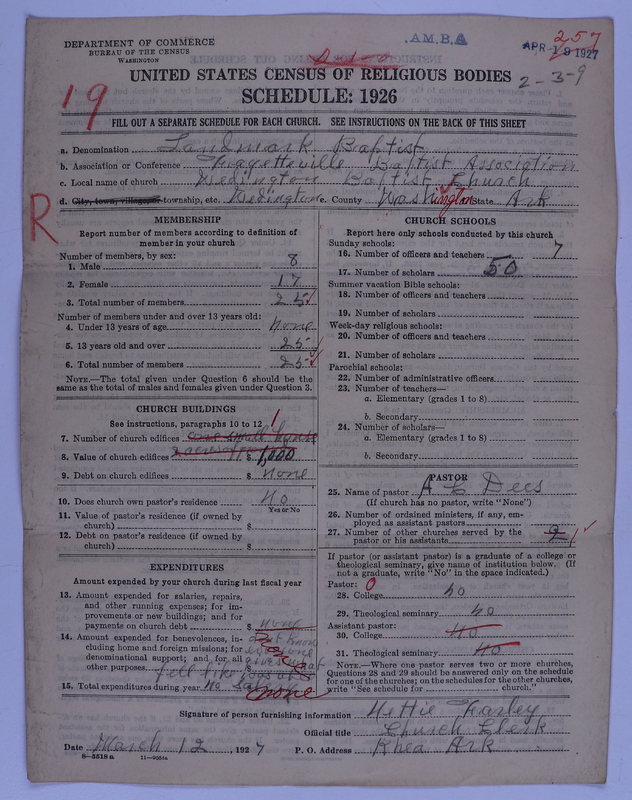 DEPARTMENT OF COMMERCE
BUREAU OF THE CENSUS
WASHINGTON
A.M.B.A
257
APR 19 1927
2-3-9
UNITED STATES CENSUS OF RELIGIOUS BODIES
SCHEDULE: 1926
19
FILL OUT A SEPARATE SCHEDULE FOR EACH CHURCH. SEE INSTRUCTIONS ON THE BACK OF THIS SHEET
a. Denomination Landmark Baptist
b. Association or Conference Fayetteville Baptist Association
c. Local name of church Dedington Baptist Church
d. City, town, village, or township, etc. Dedington e. County Washington State Ark
R
MEMBERSHIP
Report number of members according to definition of member in your church
Number of members, by sex:
1. Male 8
2. Female 17
3. Total number of members 25
Number of members under and over 13 years old:
4. Under 13 years of age None
5. 13 years old and over 25
6. Total number of members 25
NOTE.—The total given under Question 6 should be the
same as the total of males and females given under Question 3.
CHURCH BUILDINGS
See instructions, paragraphs 10 to 12
7. Number of church edifices one small 1
8. Value of church edifices $ 1,000
9. Debt on church edifices $ None
10. Does church own pastor's residence No
Yes or No
11. Value of pastor's residence (if owned by
church) $
12. Debt on pastor's residence (if owned by
church) $
EXPENDITURES
Amount expended by your church during last fiscal year
13. Amount expended for salaries, repairs,
and other running expenses; for im-
provements or new buildings; and for
payments on church debt $ none
14. Amount expended for benevolences, in-
cluding home and foreign missions; for
denominational support; and for all
other purposes
15. Total expenditures during year No none
CHURCH SCHOOLS
Report here only schools conducted by this church
Sunday schools:
16. Number of officers and teachers 7
17. Number of scholars 50
Summer vacation Bible schools:
18. Number of officers and teachers
19. Number of scholars
Week-day religious schools:
20. Number of officers and teachers
21. Number of scholars
Parochial schools:
22. Number of administrative officers
23. Number of teachers—
a. Elementary (grades 1 to 8)
b. Secondary
24. Number of scholars—
a. Elementary (grades 1 to 8)
b. Secondary
PASTOR
25. Name of pastor A L Dees
(If church has no pastor, write "None")
26. Number of ordained ministers, if any, em-
ployed as assistant pastors
27. Number of other churches served by the
pastor or his assistants 2
If pastor (or assistant pastor) is a graduate of a college or
theological seminary, give name of institution below. (If
not a graduate, write "No" in the space indicated.)
Pastor: 0
28. College no
29. Theological seminary no
Assistant pastor:
30. College no
31. Theological seminary no
NOTE.—Where one pastor serves two or more churches,
Questions 28 and 29 should be answered only on the schedule
for one of the churches; on the schedules for the other churches,
write "See schedule for church."
Signature of person furnishing information Mettie Farley
Official title Church Clerk
Date March 12, 1927 P. O. Address Rhea Ark
8—5518a 11—9054a